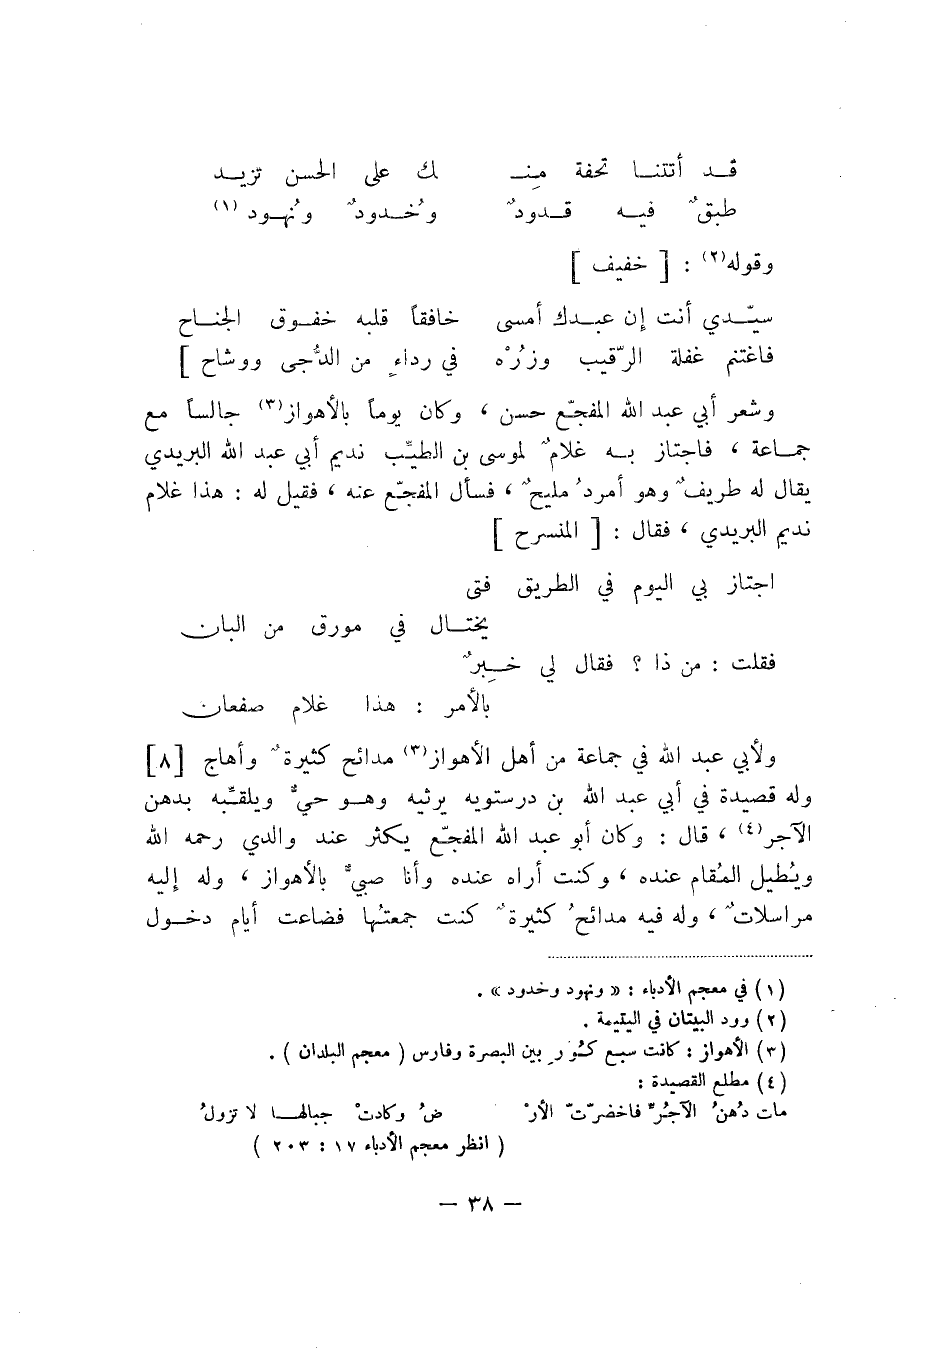 قـــد أتتنـــا تحفة مِنـــ لك على الحسن تزيـــد
طبقٌ فيـــه قـــدودٌ وخُـــدودٌ ونُهـــود (١)
وقوله(٢) : [ خفيف ]
سيّـــدي أنت إن عبـــدك أمسى خافقاً قلبه خفـــوق الجنـــاح
فاغتنم غفلة الرّقيب وزُرْه في رداءٍ من الدُّجى ووشاح ]
وشعر أبي عبد الله المفجّع حسن ، وكان يوماً بالأهواز(٣) جالساً مع
جمـــاعة ، فاجتاز بـــه غلامٌ لموسى بن الطيّب نديم أبي عبد الله البريدي
يقال له طريفٌ وهو أمردُ مليحٌ ، فسأل المفجّع عنه ، فقيل له : هذا غلام
نديم البريدي ، فقال : [ المنسرح ]
اجتاز بي اليوم في الطريق فتى
يختـــال في مورق من البان
فقلت : من ذا ؟ فقال لي خـــبِيرٌ
بالأمر : هذا غلام صفعان
ولأبي عبد الله في جماعة من أهل الأهواز(٣) مدائح كثيرةٌ وأهاج [٨]
وله قصيدة في أبي عبد الله بن درستويه يرثيه وهـــو حيٌّ ويلقّبه بدهن
الآجر(٤) ، قال : وكان أبو عبد الله المفجّع يكثر عند والدي رحمه الله
ويُطيل المُقام عنده ، وكنت أراه عنده وأنا صبيٌّ بالأهواز ، وله إليه
مراسلاتٌ ، وله فيه مدائحُ كثيرةٌ كنت جمعتُها فضاعت أيام دخـــول
(١) في معجم الأدباء : « ونهود وخدود » .
(٢) ورد البيتان في اليتيمة .
(٣) الأهواز : كانت سبع كُوَرٍ بين البصرة وفارس ( معجم البلدان ) .
(٤) مطلع القصيدة :
مات دُهنُ الآجُرِّ فاخضرّت الأرْ ضُ وكادتْ جبالهـــا لا تزولُ
( انظر معجم الأدباء ١٧ : ٢٠٣ )
— ٣٨ —